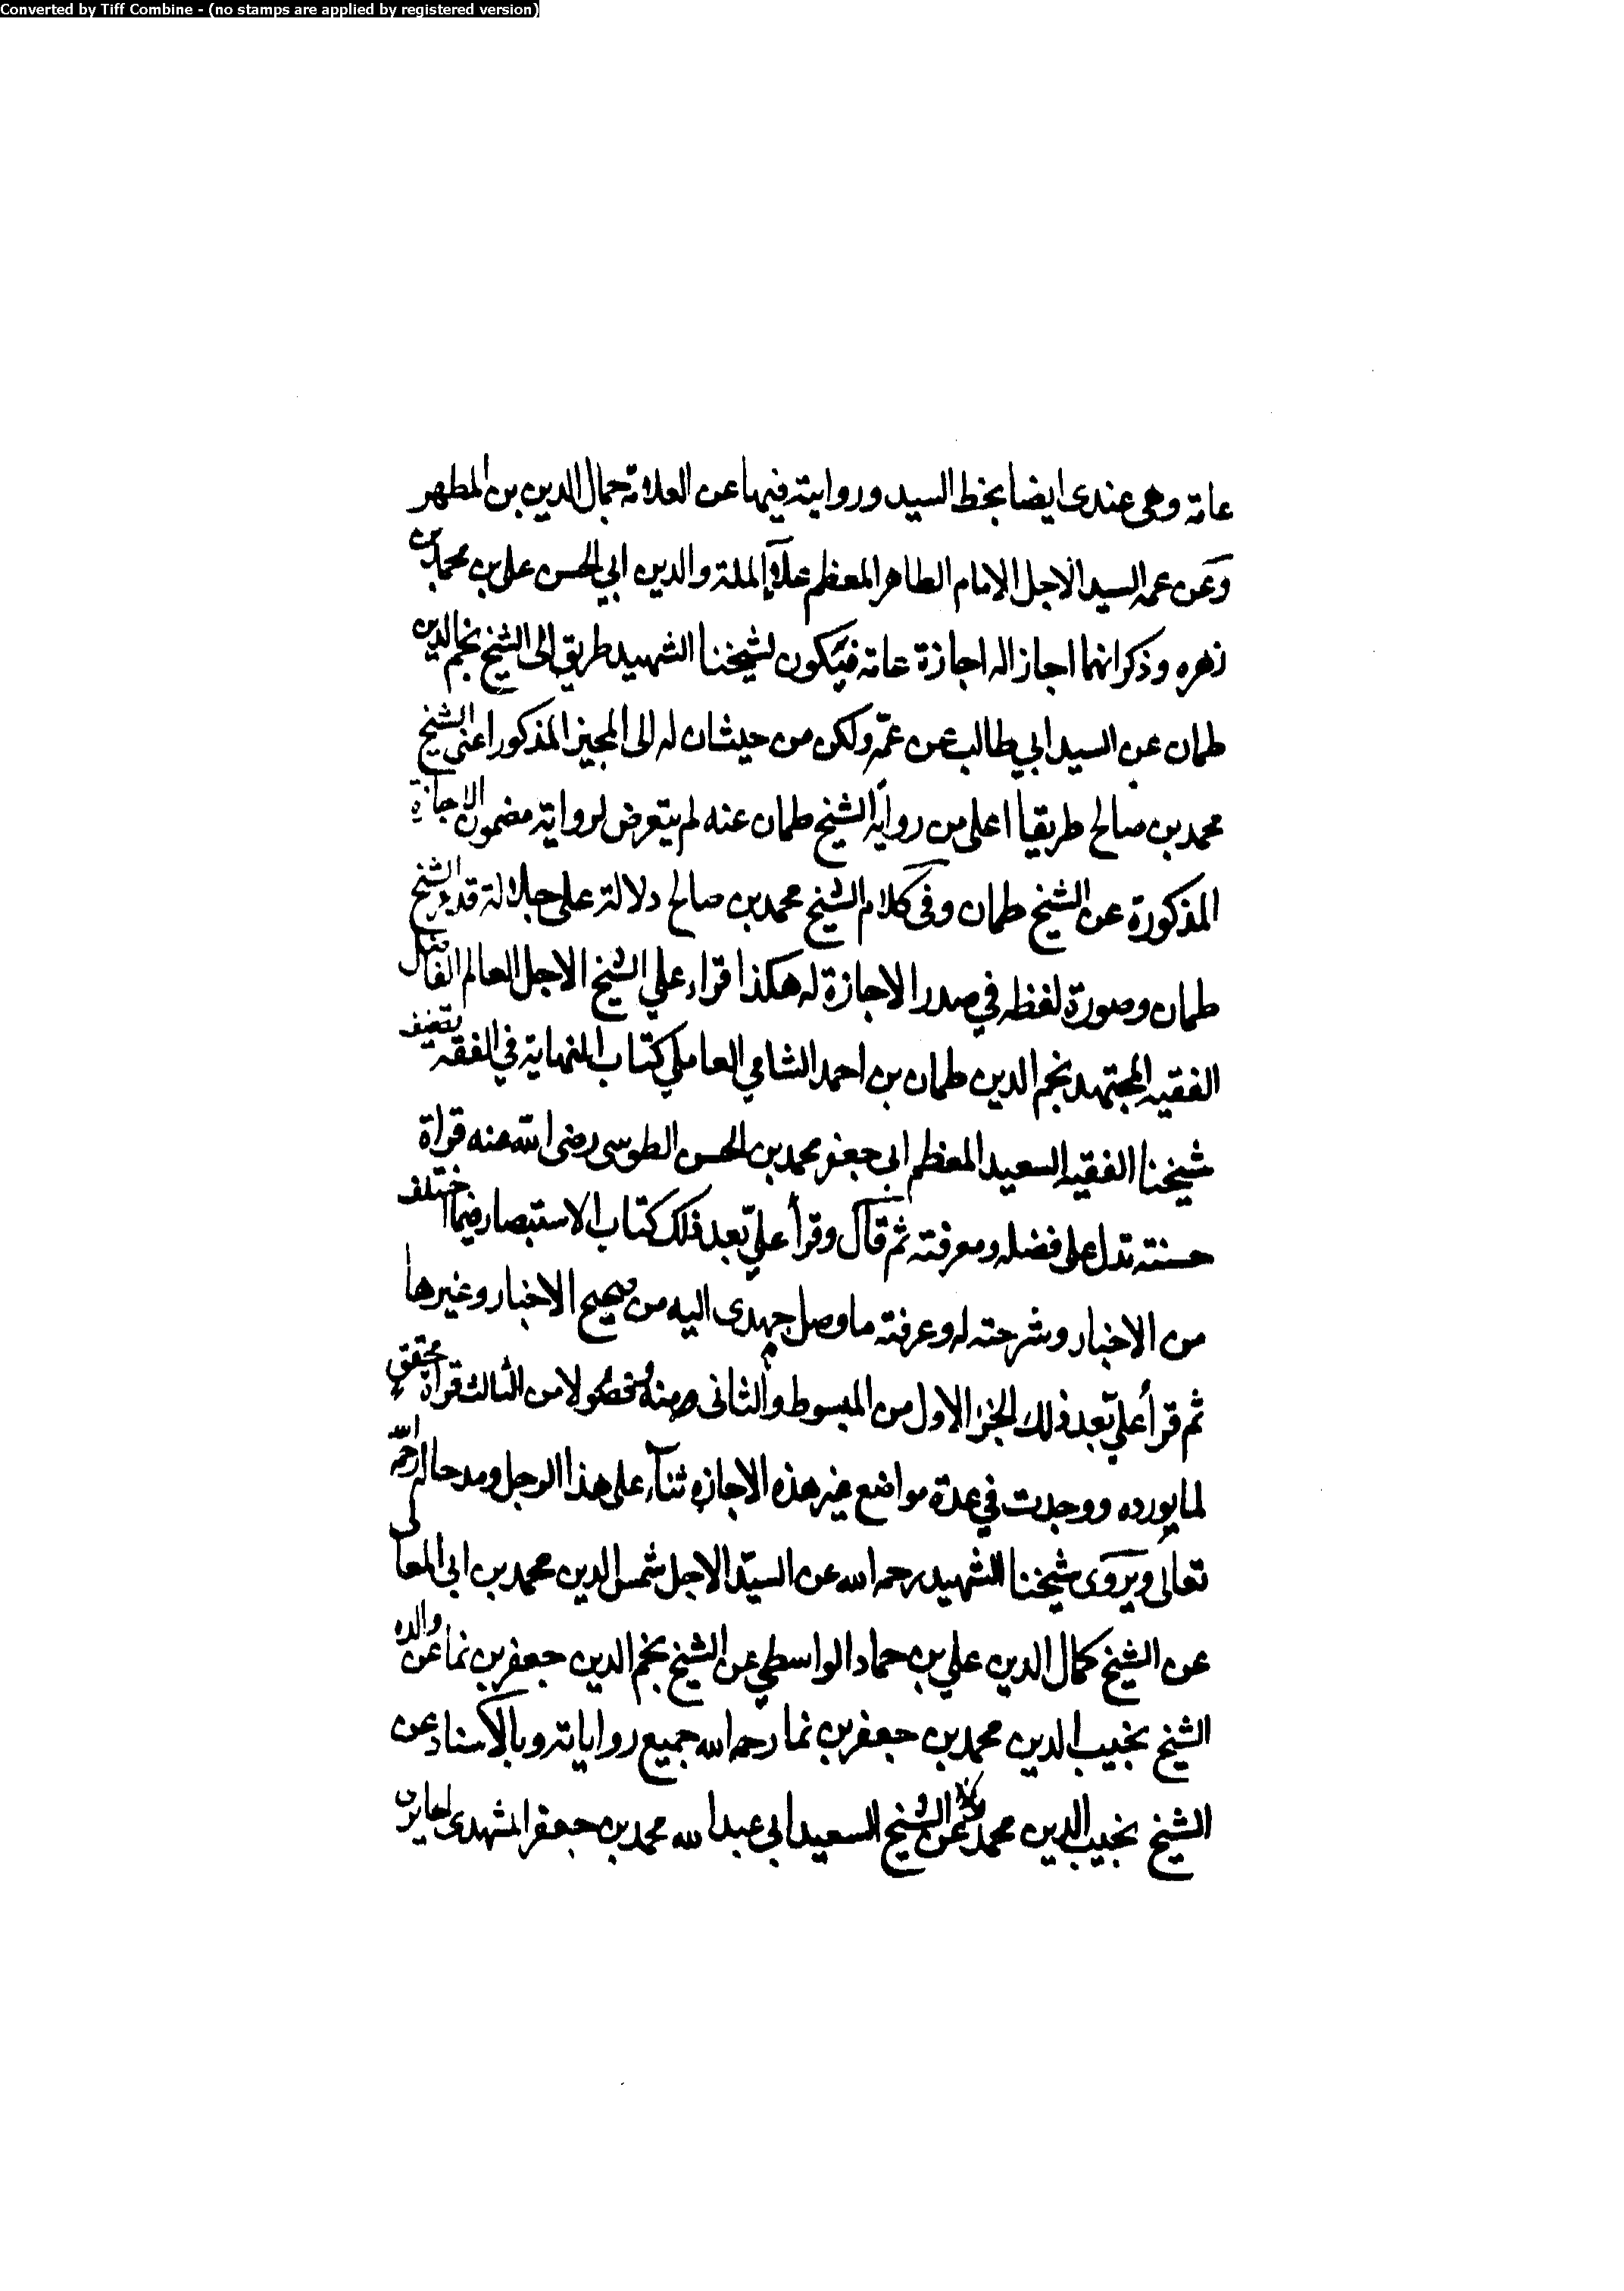 Converted by Tiff Combine - (no stamps are applied by registered version)
عامة وهى عندى ايضا بخط السيد وروايته فيها عن العلامة جمال الدين بن المطهر
وعن عمه السيد الاجل الامام الطاهر المعظم علاء الملة والدين ابي الحسن علي بن محمد بن
زهره وذكر انهما اجازا له اجازة عامه فيكون لشيخنا الشهيد طريق الى الشيخ نجم الدين
طمان عن السيد ابي طالب عن عمّه ولكن من حيث ان له الى المجيز المذكور اعنى الشيخ
محمد بن صالح طريقا اعلى من رواية الشيخ طمان عنه لم يتعرض لرواية مضمون الاجازة
المذكورة عن الشيخ طمان وفى كلام الشيخ محمد بن صالح دلالة على جلالة قدر الشيخ
طمان وصورة لفظه في صدر الاجازة له هكذا قراء علي الشيخ الاجل العالم الفاضل
الفقيه المجتهد نجم الدين طمان بن احمد الشامي العاملي كتاب النهاية في الفقه تصنيف
شيخنا الفقيه السعيد المعظم ابى جعفر محمد بن الحسن الطوسى رضى الله عنه قراة
حسنته تدل على فضله ومعرفته ثم قال وقرأ عليّ بعد ذلك كتاب الاستبصار فيما اختلف
من الاخبار وشرحته له وعرفته ما وصل جهدى اليه من صحيح الاخبار وغيرها
ثم قرأ عليّ بعد ذلك الجزء الاول من المبسوط والثانى ومنه فصولا من الثالث قراة محقق
لما يورده ووجدت في عدة مواضع غير هذه الاجازه ثناء على هذا الرجل ومدحا له رحمه الله
تعالى ويروى شيخنا الشهيد رحمه الله عن السيّد الاجل شمس الدين محمد بن ابى المعالى
عن الشيخ كمال الدين علي بن حماد الواسطي عن الشيخ نجم الدين جعفر بن نما عن والده
الشيخ نجيب الدين محمد بن جعفر بن نما رحمه الله جميع رواياته وبالاسناد عن
الشيخ نجيب الدين محمد عن الشيخ السعيد ابى عبد الله محمد بن جعفر المشهدى الحايرى